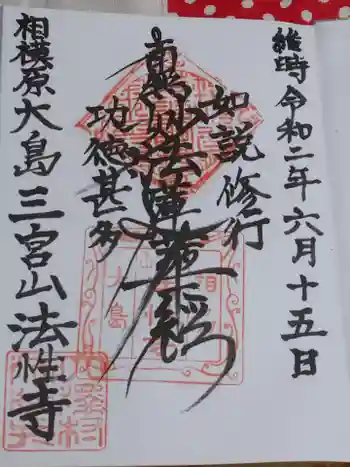 維時令和二年六月十五日
如説修行
南無妙法蓮華経
功徳甚多
相模原大島三宮山法性寺
大島